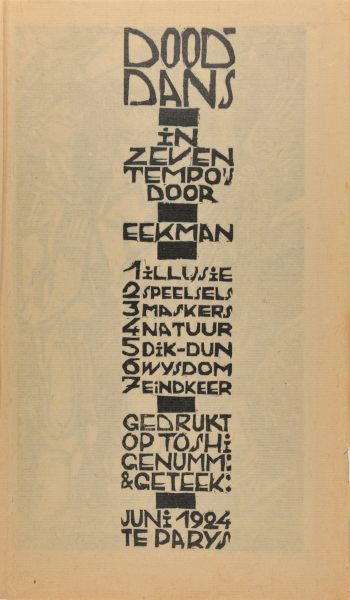 DOOD-
DANS
iN
ZEVEN
TEMPO'S
DOOR
EEKMAN
1 iLLUSiE
2 SPEELSELS
3 MASKERS
4 NATUUR
5 DiK-DUN
6 WYSDOM
7 EiNDKEER
GEDRUKT
OP TOSHi
GENUMM:
& GETEEK:
JUNi 1924
TE PARYS